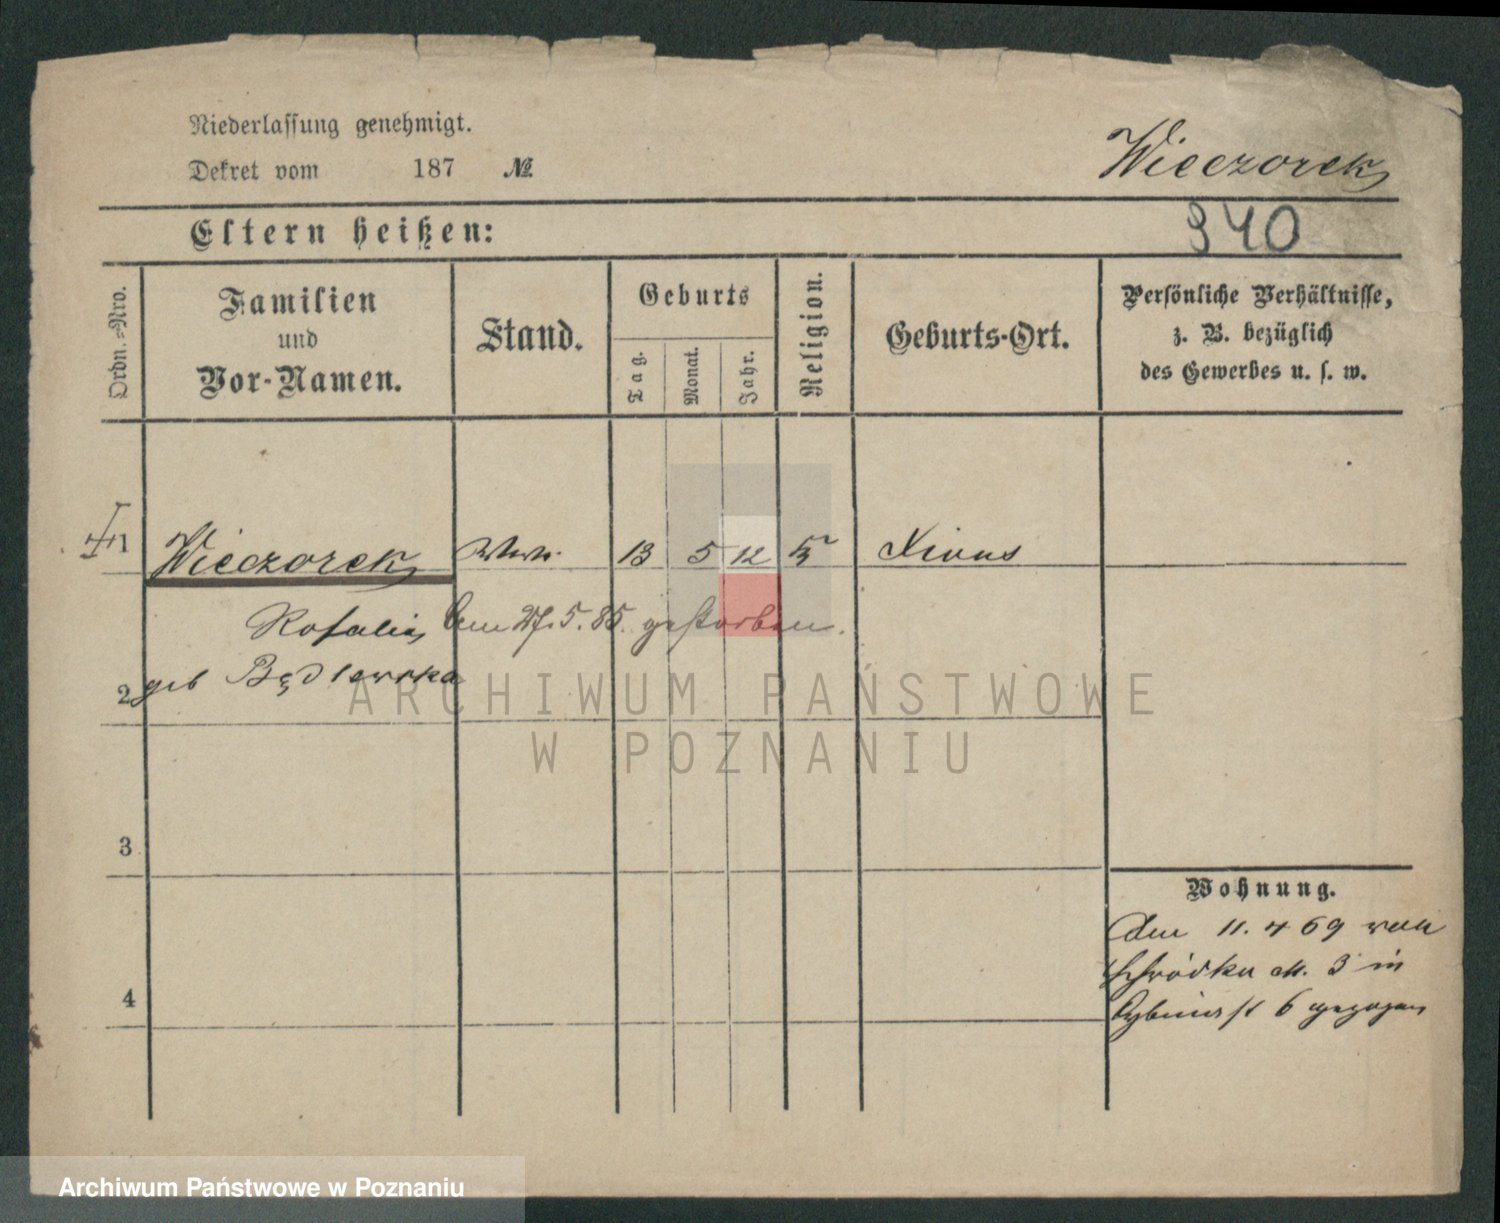 Niederlassung genehmigt.
Dekret vom 187 №
Wieczorek
340
Eltern heißen:
Ordn.-Nro.
Familien
und
Vor-Namen.
Stand.
Geburts
Tag.
Monat.
Jahr.
Religion.
Geburts-Ort.
Persönliche Verhältnisse,
z. B. bezüglich
des Gewerbes u. s. w.
1 Wieczorek Wwe. 13 5 12 Xions
Rosalia, den 27. 5. 85. gestorben.
2 geb
ARCHIWUM PAŃSTWOWE
W POZNANIU
3
Wohnung.
Den 11. 4 69 von
Schrodka N. 3 in
4
6 gezogen
Archiwum Państwowe w Poznaniu